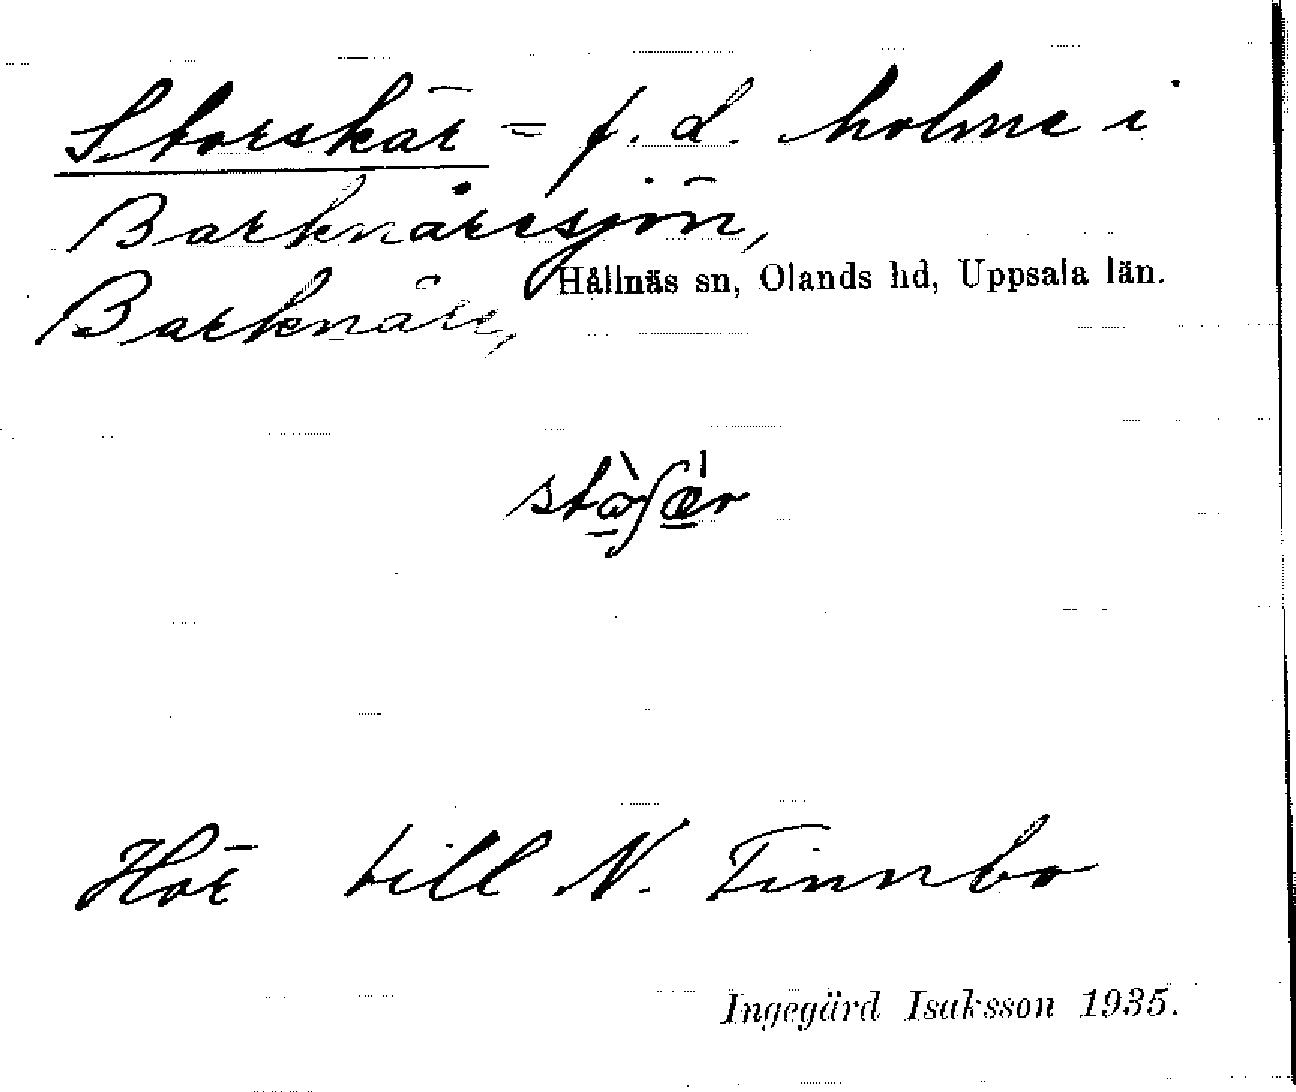 Storskär = f. d. holme i
Barknåresjön,
Hållnäs sn, Olands hd, Uppsala län.
Barknåre,
Hör till N. Finnbo
Ingegärd Isaksson 1935.